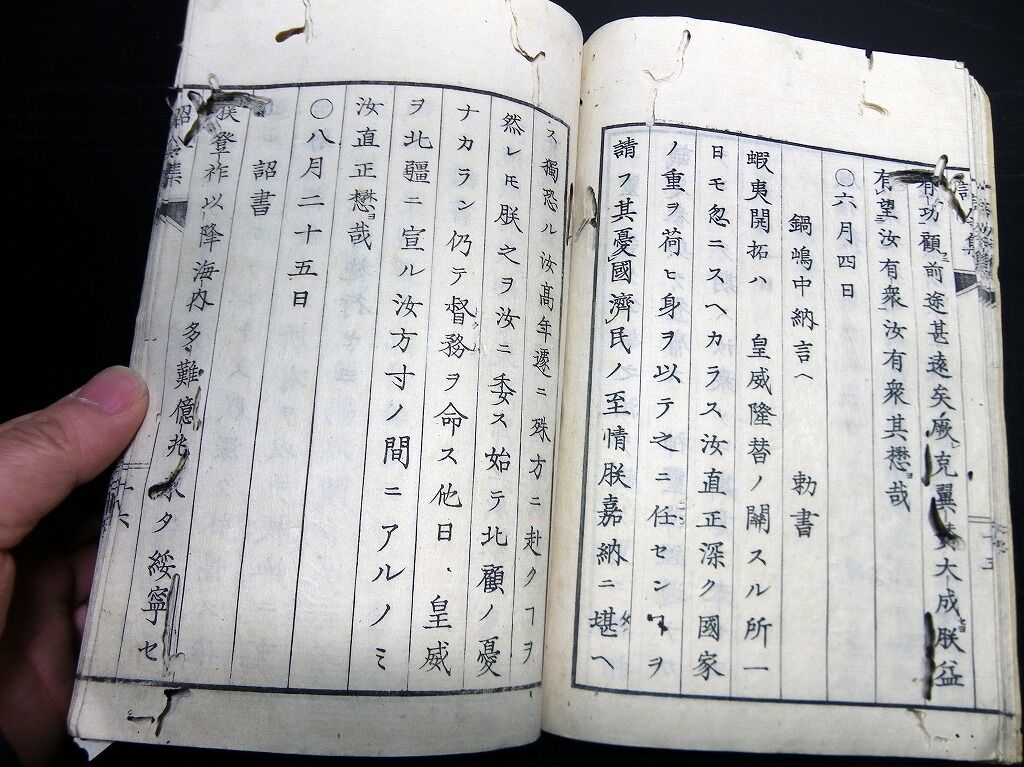 有功顧前途甚遠矣厥克翼贊大成朕益
有望汝有衆汝有衆其懋哉
〇六月四日
鍋嶋中納言ヘ 勅書
蝦夷開拓ハ 皇威隆替ノ關スル所一
日モ忽ニスヘカラス汝直正深ク國家
ノ重ヲ荷ヒ身ヲ以テ之ニ任センヿヲ
請フ其憂國濟民ノ至情朕嘉納ニ堪ヘ
ス獨恐ル汝高年遽ニ殊方ニ赴クヿヲ
然レ𪜈朕之ヲ汝ニ委ス始テ北顧ノ憂
ナカラン仍テ督務ヲ命ス他日 皇威
ヲ北疆ニ宣ル汝方寸ノ間ニアルノミ
汝直正懋哉
〇八月二十五日
詔書
朕登祚以降海内多難億兆未タ綏寧セ
詔 集
十六